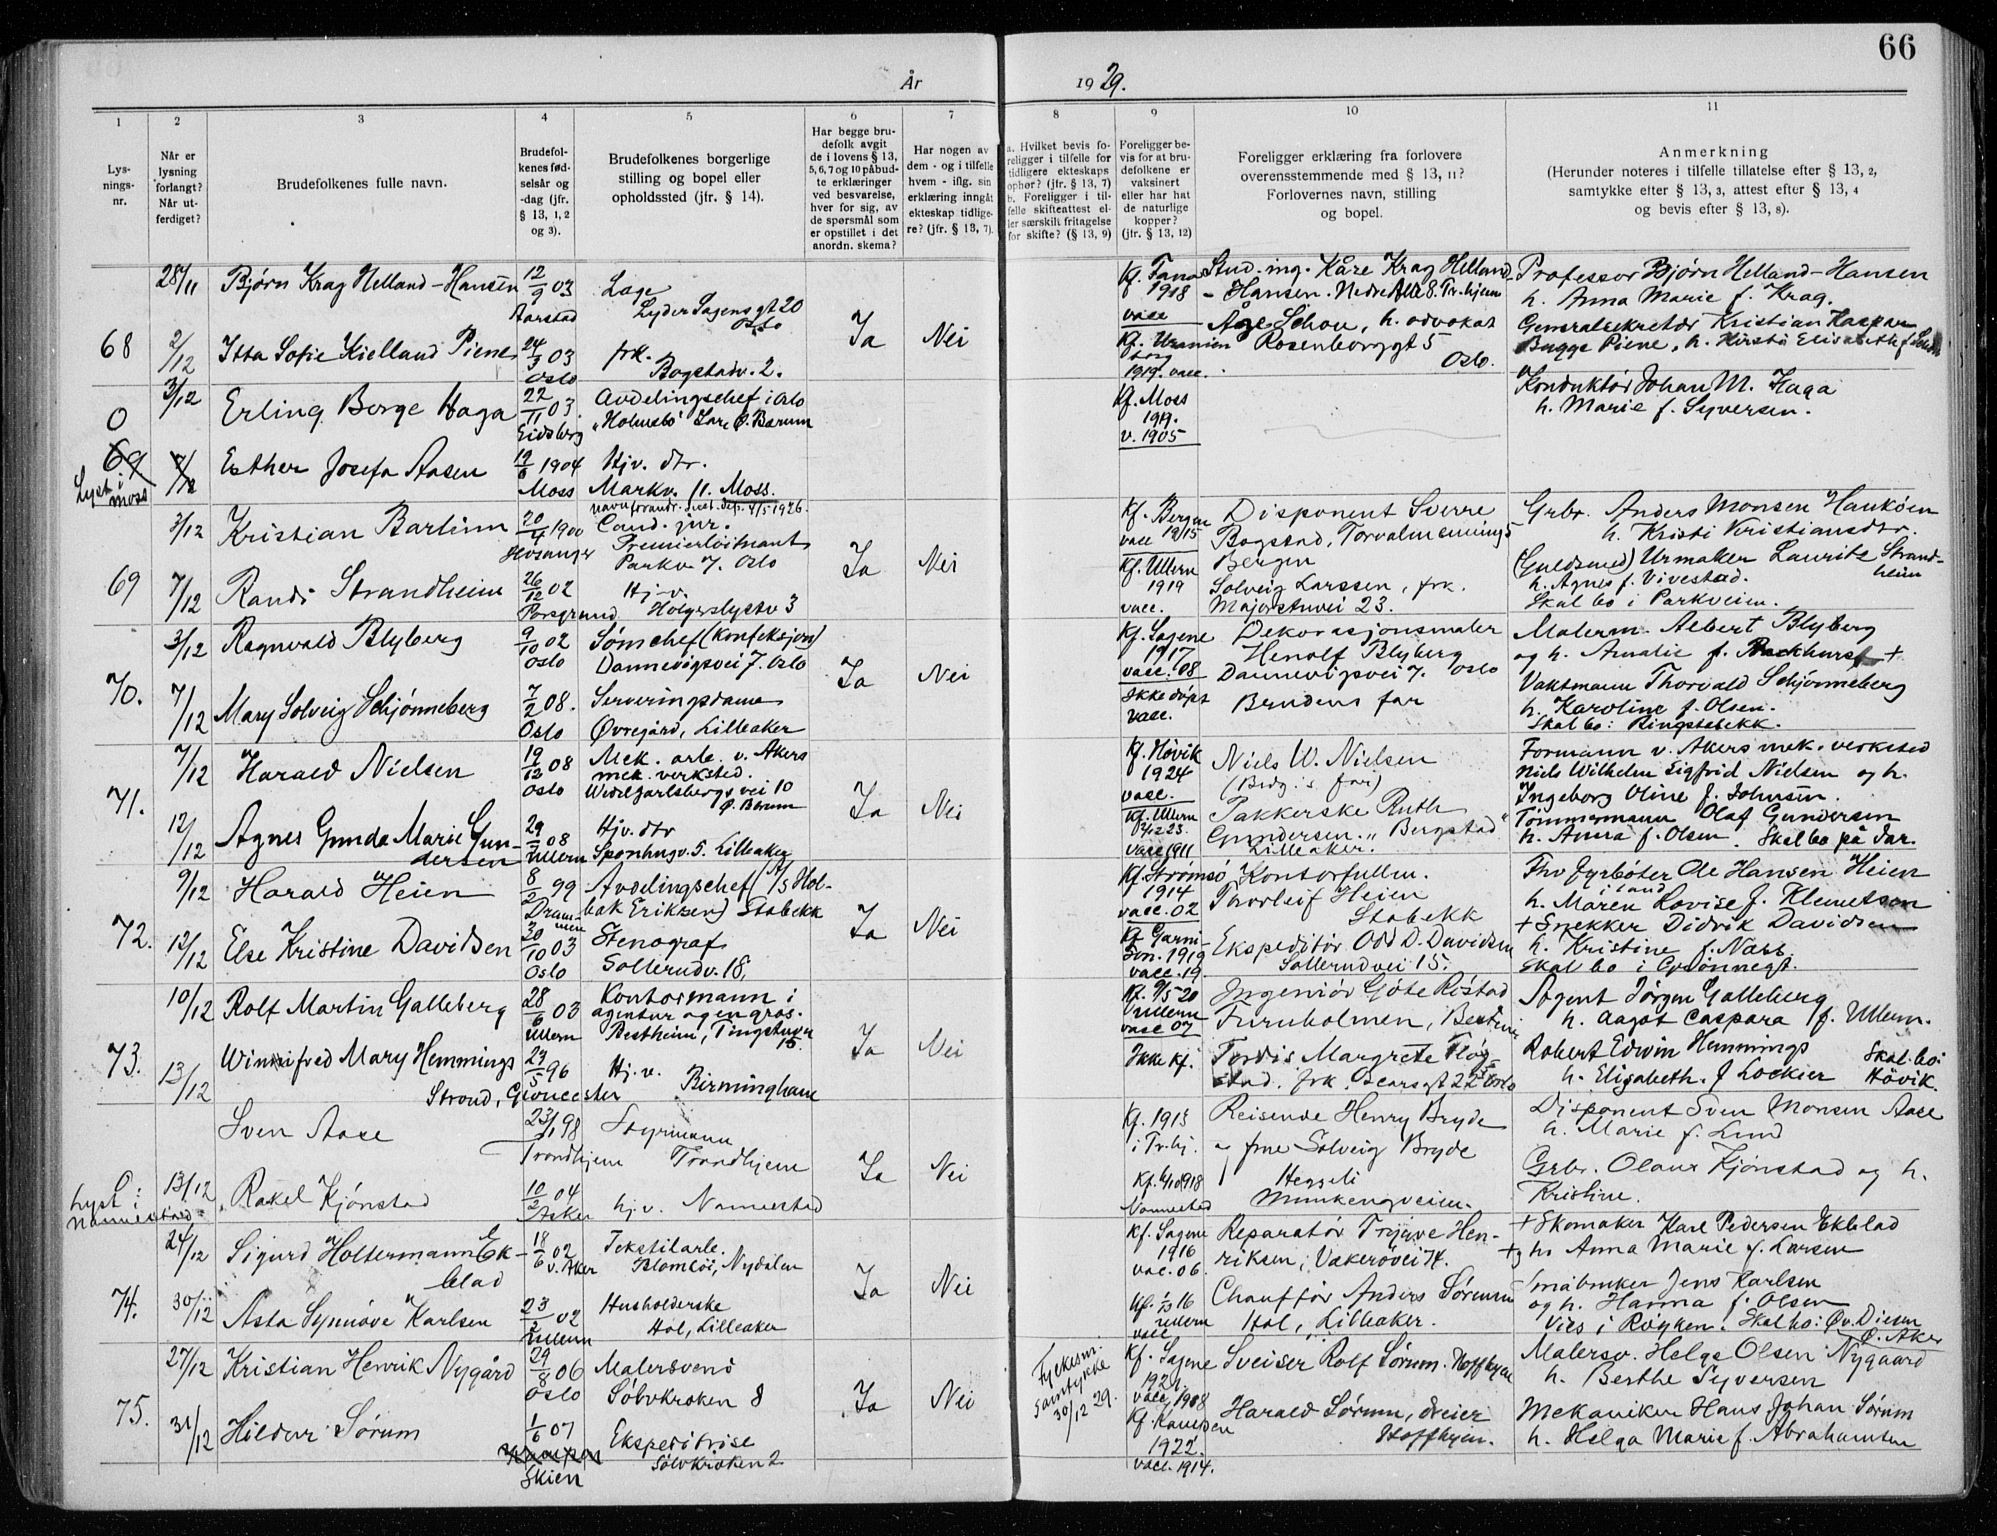 66
År 1929.
1
2
3
4
5
6
7
8
9
10
11
Lys-
nings-
nr.
Når er
lysning
forlangt?
Når ut-
ferdiget?
Brudefolkenes fulle navn.
Brudefol-
kenes fød-
selsår og
-dag (jfr.
§ 13, 1, 2
og 3).
Brudefolkenes borgerlige
stilling og bopel eller
opholdssted (jfr. § 14).
Har begge bru-
defolk avgit
de i lovens § 13,
5, 6, 7 og 10 påbud-
te erklæringer
ved besvarelse,
hver for sig, av
de spørsmål som
er opstillet i det
anordn. skema?
Har nogen av
dem - og i tilfelle
hvem - iflg. sin
erklæring inngått
ekteskap tidlige-
re? (jfr. § 13, 7).
a. Hvilket bevis fo-
religger i tilfelle for
tidligere ekteskaps
ophør? (jfr. § 13, 7)
b. Foreligger i til-
felle skifteattest el-
ler særskilt fritagelse
for skifte? (§ 13, 9)
Foreligger be-
vis for at bru-
defolkene er
vaksinert
eller har hat
de naturlige
kopper?
(jfr. § 13, 12)
Foreligger erklæring fra forlovere
overensstemmende med § 13, 11?
Forlovernes navn, stilling
og bopel.
Anmerkning
(Herunder noteres i tilfelle tillatelse efter § 13, 2,
samtykke efter § 13, 3, attest efter § 13, 4
og bevis efter § 13, 8).
68
28/11
2/12
Bjørn Krag Helland-Hansen
12/9 03
Aarstad
Læge
Lyder Sagens gt 20
Oslo
Itta Sofie Kielland Piene
24/3 03
Oslo
frk.
Bogstadv. 2.
Ja
Nei
Kf. Fana
1918
vacc
Kf. Uranien
borg
1919. vacc.
Stud. ing. Kåre Krag Helland
- Hansen. Nedre Alle 8. Tr.hjem
Åge Schou, h. advokat
Rosenborggt 5
Oslo.
Professor Bjørn Helland-Hansen
h. Anna Marie f. Krag.
Generalsekretær Kristian Kaspar
Bugge Piene, h. Kirsti Elisabeth f.
0
69
Lyst i
Moss
3/12
7/12
Erling Berge Haga
22/11 03.
Eidsberg
Avdelingschef i Oslo
"Holmsbo" Ø. Bærum
Esther Josefa Aasen
19/6 1904
Moss
Hjv. dtr.
Markv. 11. Moss.
Kf. Moss
1919.
v. 1905
Konduktør Johan M. Haga
h. Marie f. Syversen.
69
3/12
7/12
Kristian Bartinn
20/4 1900
Hosanger
navneforandr. Just. dep. 4/5 1926.
Cand. jur.
Premierløitnant
Parkv. 7. Oslo
Randi Strandheim
26/12 02
Porsgrund
Hj.v.
Holgerslystv 3
Ja
Nei
Kf. Bergen
vacc 1915
Kf. Ullern
1919
vacc.
Disponent Sverre
Bogstad, Torvalmenning 5
Bergen
Solveig Larssen, frk.
Majorstuvei 23.
Grbr. Anders Monsen Haukøen
h. Kristi Kristiansdtr.
(Guldsmed) Urmaker Laurits Strand-
heim
h. Agnes f. Vivestad.
Skal bo i Parkveien.
70.
3/12
7/12
Ragnvald Blyberg
9/10 02
Oslo
Sømchef (Konfeksjon)
Dannevigsvei 7. Oslo
Mary Solveig Schjønneberg
7/2 08.
Oslo
Serveringsdame
Øvregård, Lilleaker
Ja
Nei
Kf. Sagene
1917
vacc. 08
Ikke døpt
vacc.
Dekorasjonsmaler
Henolf Blyberg
Dannevigsvei 7. Oslo
Brudens far
Malerm. Albert Blyberg
og h. Amalie f. Backhurst +
Vaktmann Thorvald Schjønneberg
h. Karoline f. Olsen.
Skal bo: Ringstabekk.
71.
7/12
12/12
Harald Nielsen
19/12 08
Oslo
Mek. arb. v. Akers
mek. verksted.
Wedel Jarlsbergs vei 10
Ø. Bærum
Agnes Gunda Marie Gun-
dersen
29/7 08
Ullern
Hjv. dtr
Sponhugv. 5. Lilleaker
Ja
Nei
Kf. Høvik
1924
vacc.
Kf. Ullern
23.
vacc 1911
Niels W. Nielsen
(Brdg.s far)
Pakkerske Ruth
Gundersen. "Bergstad"
Lilleaker.
Formann v. Akers mek. verksted
Niels Wilhelm Sigfrid Nielsen og h.
Ingeborg Oline f. Johnsen.
Tømmermann Olaf Gundersen
h. Anna f. Olsen. Skal bo på Jar.
72.
9/12
12/12
Harald Heien
8/2 99
Dram-
men
Avdelingschef (A/S Hol-
bak Eriksen) Stabekk
Else Kristine Davidsen
30/10 03
Oslo
Stenograf
Sollerudv. 18.
Ja
Nei
Kf. Strømsø
1914
vacc. 02
Kf Garni-
son. 1919
vacc. 19.
Kontorfullm.
Thorleif Heien
Stabekk
Ekspeditør Odd D. Davidsen
Sollerudvei 15.
Fhv fyrbøter Ole Hansen Heien
h. Maren Lovise f. Klemetson
+ Snekker Didrik Davidsen
h. Kristine f. Næss.
Skal bo i Grønnegt.
73.
10/12
13/12
Rolf Martin Galleberg
28/6 03
Ullern
Kontormann i
agentur og engros.
Bestheim, Tingstuvn
15.
Winnifred Mary Hemmings
23/5 96
Stroud, Gloucester
Hj. v.
Birmingham
Ja
Nei
Kf. 9/5 20
Ullern
vacc 07
Ikke kf.
Ingeniør Gøte Ristad
Furuholmen, Bestum
Tordis Margrete Fløg-
stad, frk. Oscarsgt 22 Oslo
Agent Jørgen Galleberg
h. Aagot Caspara f. Ullern.
Robert Edwin Hemmings
h. Elisabeth. f Lockier
Skal bo:
Høvik.
0:
Lyst i
Nannestad
13/12
Sven Aase
23/1 98
Trondhjem
Styrmann
Trondhjem
Rakel Kjønstad
10/2 04
Asker
hj. v. Nannestad
Ja
Nei
Kf. 1913
i Tr.hj.
Kf. 1918
Nannestad
Reisende Henry Bryde
og frue Solveig Bryde
Heggeli
Munkengveien.
Disponent Sven Monsen Aase
h. Marie f. Lund
Grbr. Olaus Kjønstad og h.
Kristine.
74.
24/12
30/12
Sigurd Holtermann Ek-
blad
18/6 02
v. Aker
Tekstilarb.
Blomboi, Nydalen
Asta Synnøve Karlsen
23/2 02
Ullern
Husholderske
Hol, Lilleaker
Ja
Nei
Kf. Sagene
1916
vac. 06.
Kf. 16
Ullern
vacc
Reparatør Trygve Hen-
riksen, Vakerøvei 74.
Chauffør Anders Sørensen
Hol, Lilleaker.
+ Skomaker Karl Pedersen Ekblad
+ og h. Anna Marie f. Larsen
Småbruker Jens Karlsen
og h. Hanna f. Olsen
Vies i Røyken. Skal bo: Øv. Diesen
Ø. Aker
75.
27/12
31/12
Kristian Henrik Nygård
29/8 06
Oslo
Malersvend
Sølvkroken 8
Hildur Sørum
1/6 07
Skien
Ekspeditrise
Sølvkroken 2
Ja
Nei
Fylkesm.
samtykke
30/12 29.
Kf. Sagene
1921.
vacc, 1908
Kf.
1922.
vacc. 1914.
Sveiser Rolf Sørum. Hoffbyen
Harald Sørum, dreier
Hoffbyen.
Malersv. Helge Olsen Nygaard
h. Berthe Syversen
Mekaniker Hans Johan Sørum
h. Helga Marie f. Abrahamsen